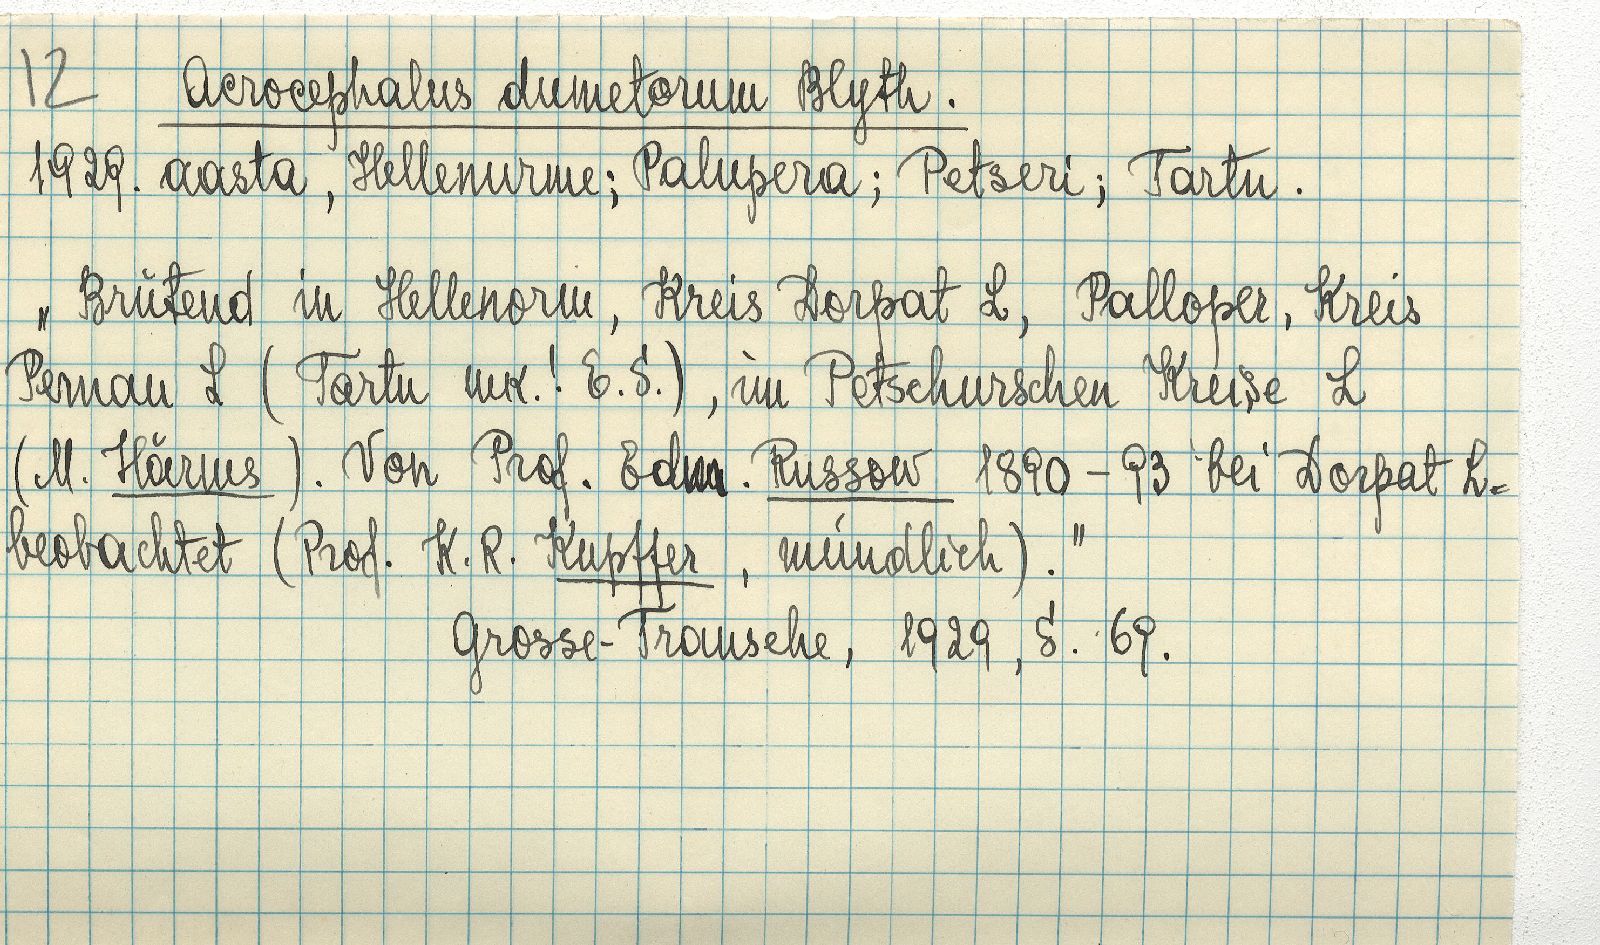 12 Acrocephalus dumetorum Blyth.
1929. aasta, Hellenurme; Palupera; Petseri; Tartu.
„Brütend in Hellenorm, Kreis Dorpat L, Palloper, Kreis
Pernau L (Tartu mk.! E.S.), im Petschurschen Kreise L
(M. Härms). Von Prof. Edm. Russow 1890-93 bei Dorpat L=
beobachtet (Prof. K.R. Kupffer, mündlich)."
Grosse-Transehe, 1929, S. 69.